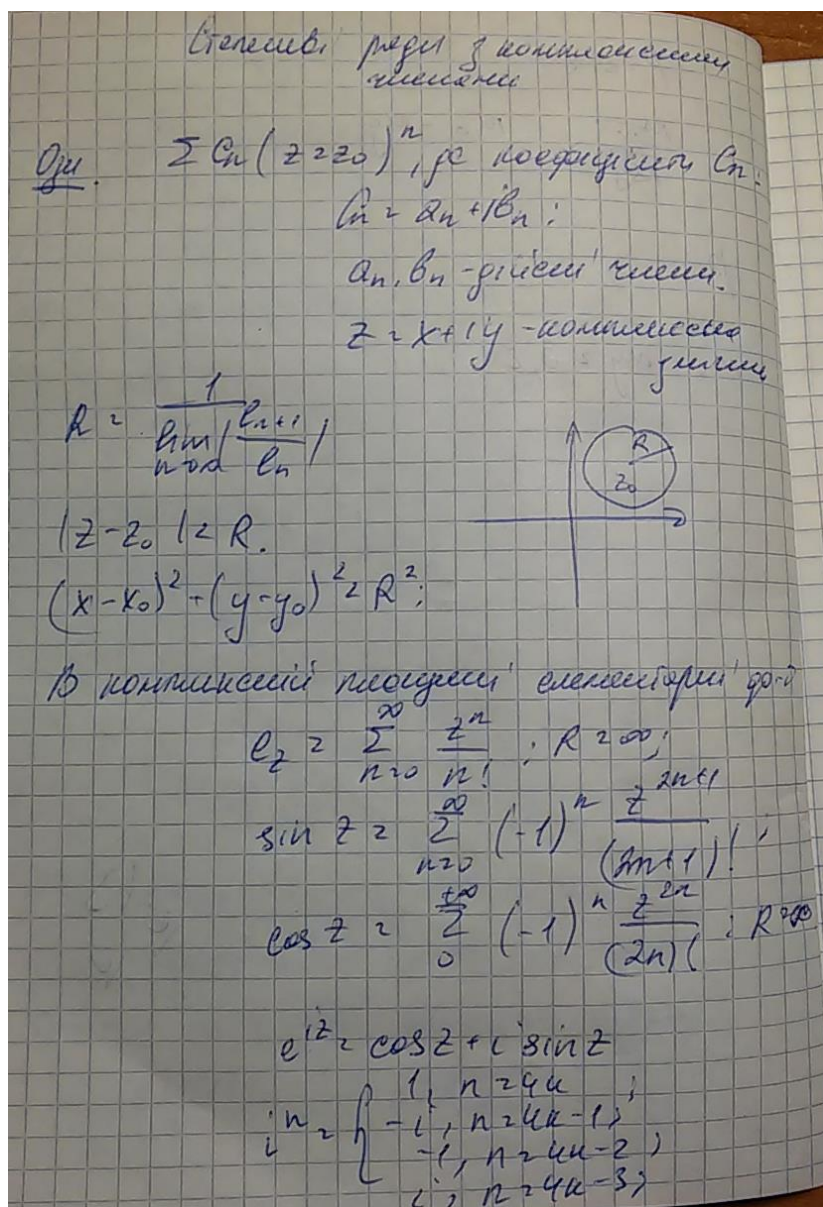 Степеневі ряди з комплексними
числами
Озн. Σ Cn (z = z0)^n, де коефіцієнти Cn:
Cn = an + ibn;
an, bn - дійсні числа.
z = x + iy - комплексна
змінна
R = 1 / lim n→∞ | Cn+1 / Cn |
R
z0
|z - z0| = R.
(x - x0)^2 + (y - y0)^2 = R^2;
В комплексній площині елементарні ф-ї
ez = Σ n=0 ∞ z^n / n! ; R = ∞;
sin z = Σ n=0 ∞ (-1)^n z^(2n+1) / (2n+1)! ;
cos z = Σ 0 +∞ (-1)^n z^(2n) / (2n)! ; R = ∞
e^iz = cos z + i sin z
i^n = { 1, n = 4k ;
-i, n = 4k-1;
-1, n = 4k-2;
i, n = 4k-3;